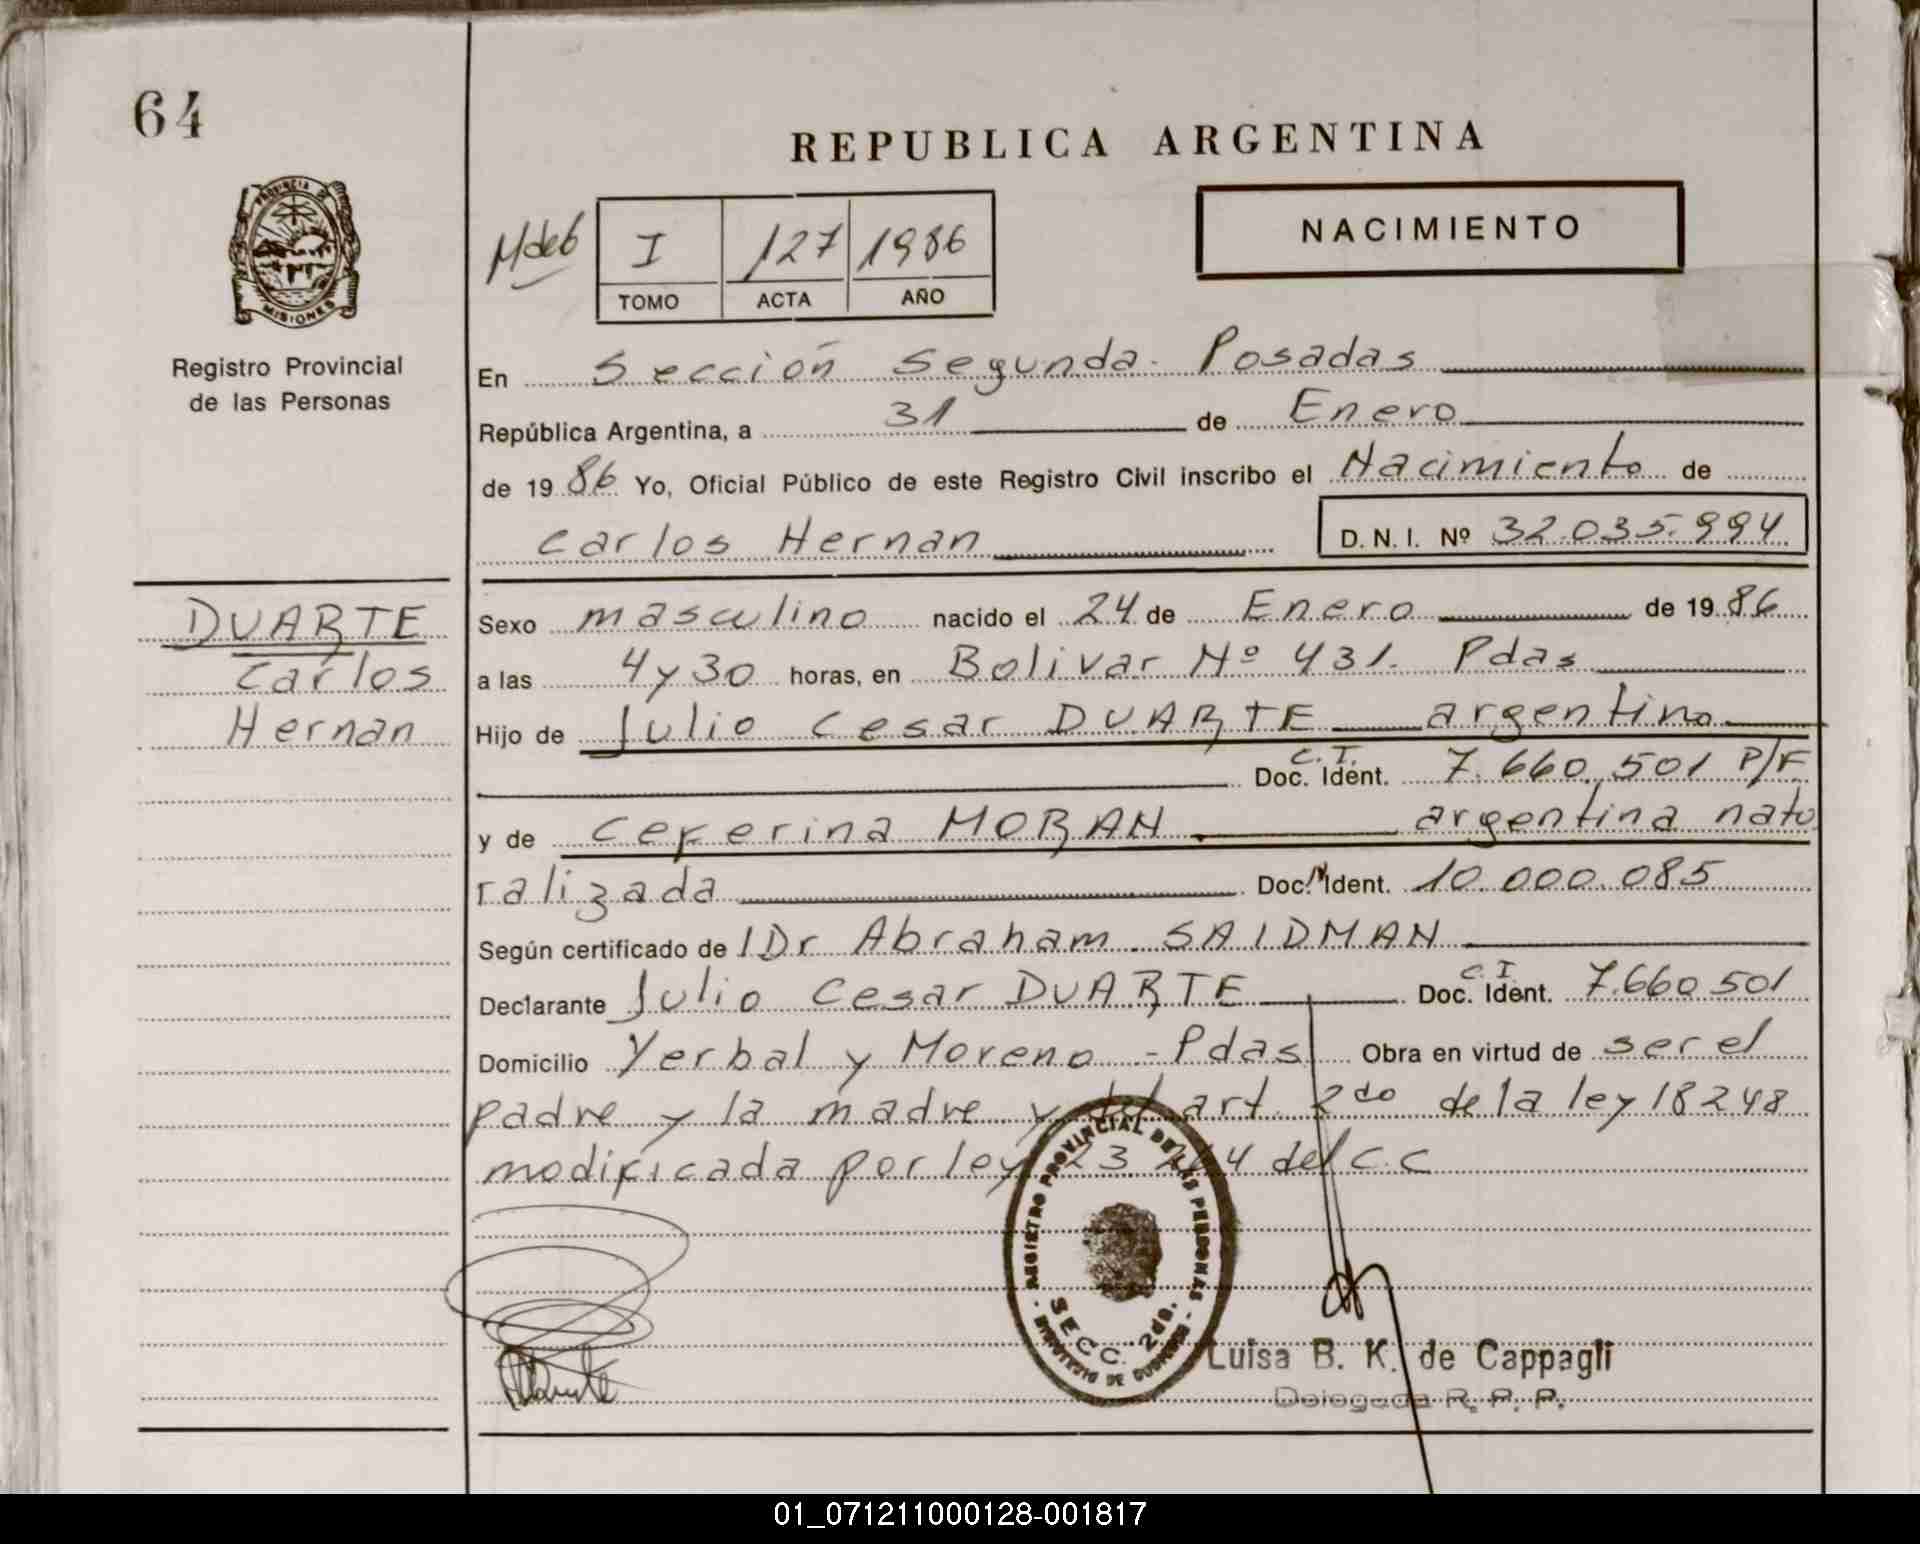 64
REPUBLICA ARGENTINA
PROVINCIA DE
MISIONES
Registro Provincial
de las Personas
I 127 1986
TOMO ACTA AÑO
NACIMIENTO
En Sección Segunda - Posadas
República Argentina, a 31 de Enero
de 1986 Yo, Oficial Público de este Registro Civil inscribo el Nacimiento de
Carlos Hernan D.N.I. Nº 32.035.994
DUARTE
Carlos
Hernan
Sexo masculino nacido el 24 de Enero de 1986
a las 4 y 30 horas, en Bolivar Nº 431. Pdas
Hijo de Julio Cesar DUARTE argentino
C.I.
Doc. Ident. 7.660.501 P/F
y de Ceferina MORAN argentina natu
ralizada Doc. Ident. 10.000.085
Según certificado de Dr Abraham SAIDMAN
Declarante Julio Cesar DUARTE C.I Doc. Ident. 7.660 501
Domicilio Yerbal y Moreno - Pdas Obra en virtud de ser el
padre y la madre y del art. 2do de la ley 18248
modificada por ley 23 264 del C.C
REGISTRO PROVINCIAL DE LAS PERSONAS
SECC. 2da.
MINISTERIO DE GOBIERNO
Luisa B. K. de Cappagli
Delegada R. P. P.
01_071211000128-001817